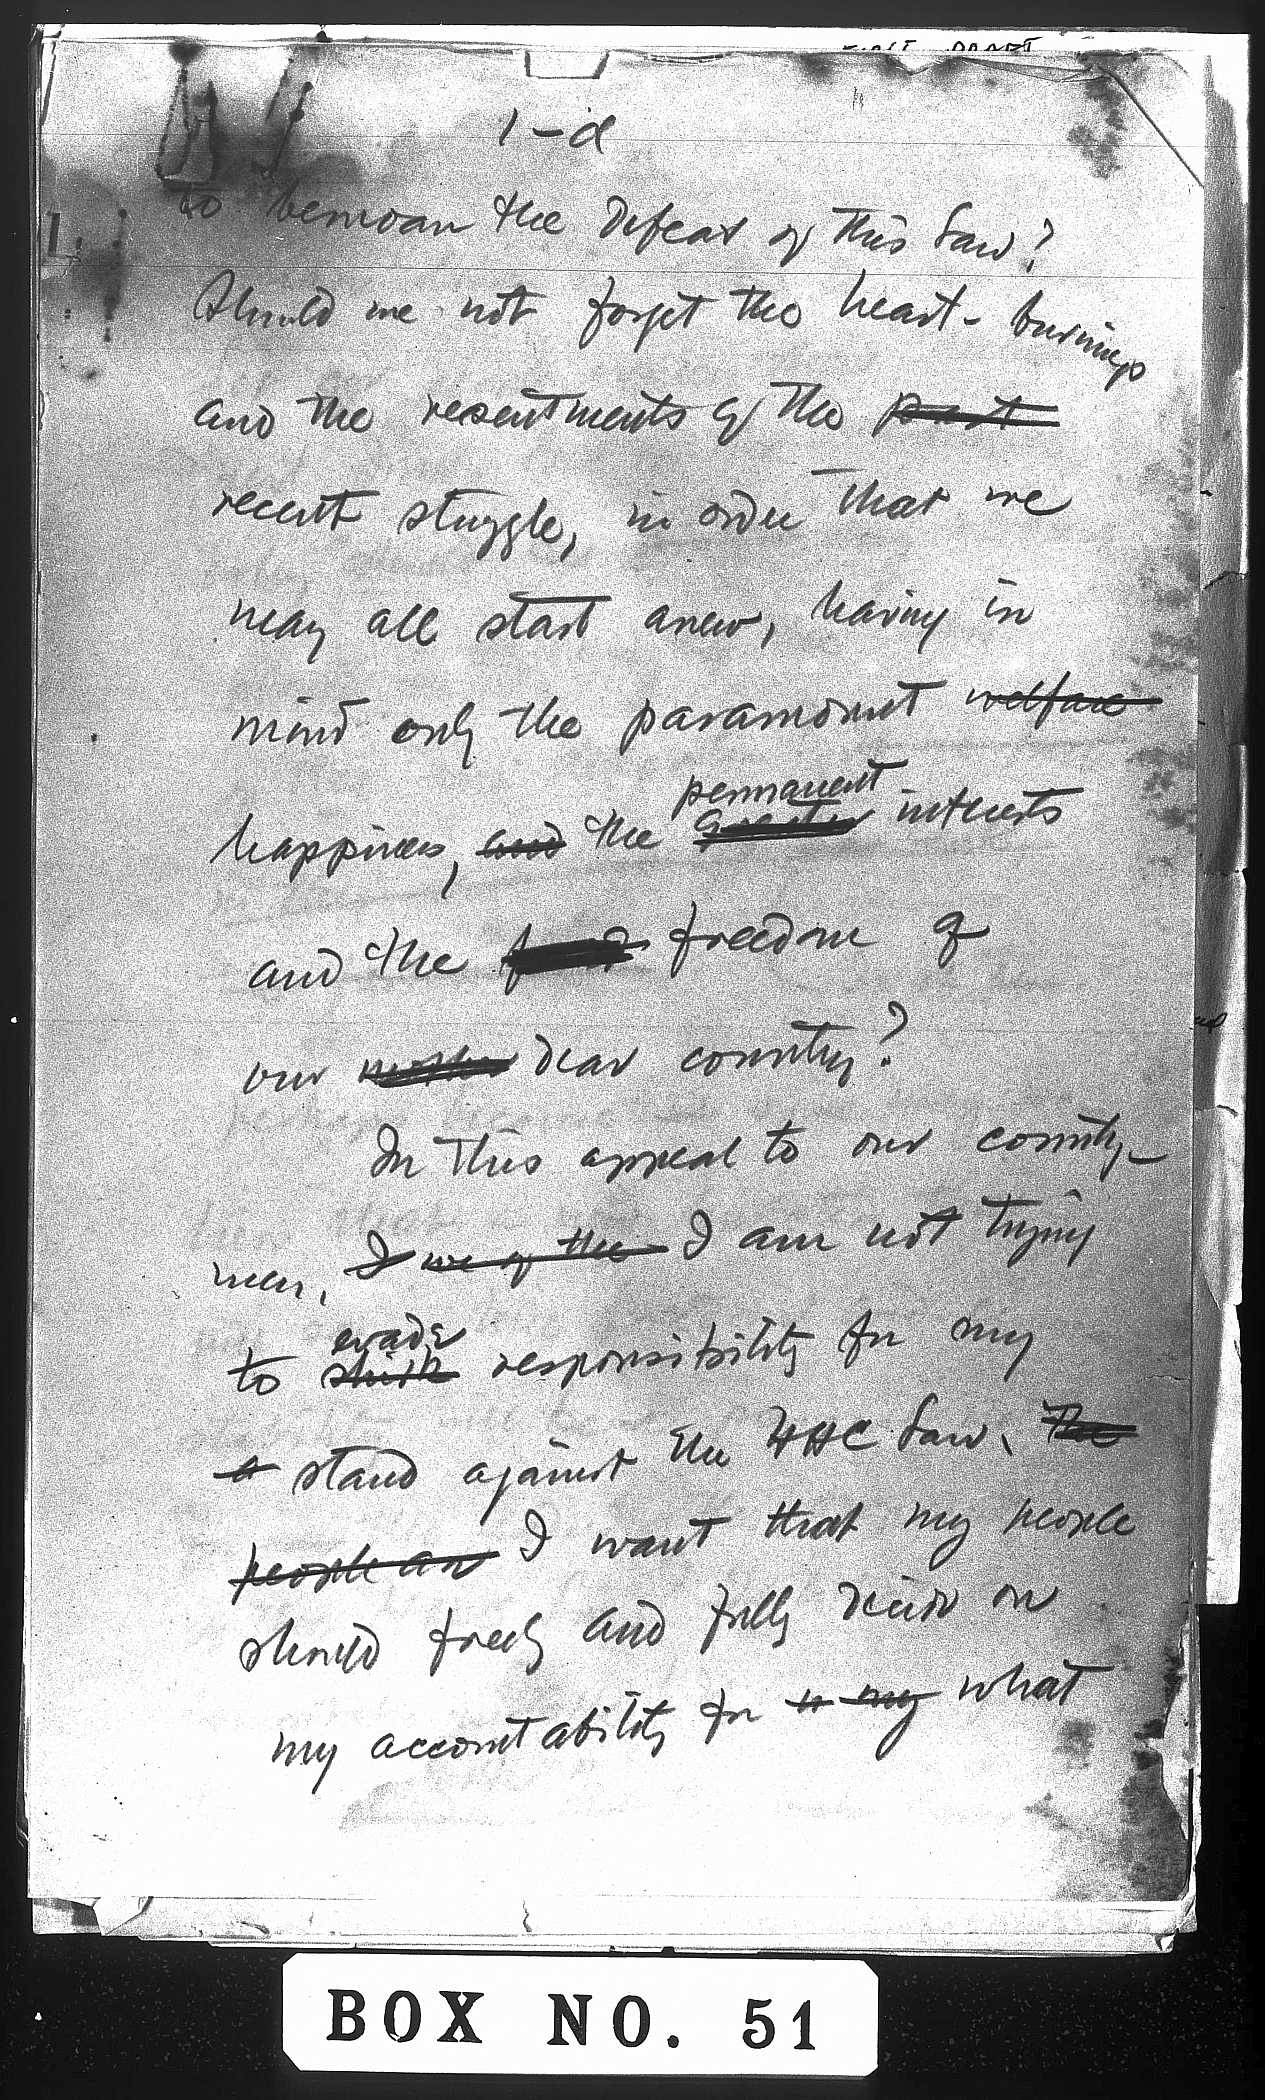 FIRST DRAFT
1-d
to bemoan the defeat of this law?
Should we not forget the heart-burnings
and the resentments of the past
recent struggle, in order that we
may all start anew, having in
mind only the paramount welfare
permanent
happiness, and the greater interests
and the freedom of
our mother dear country?
In this appeal to our country-
men, I we of the I am not trying
evade
to shirk responsibility for my
a stand against the HHC law. The
people an I want that my people
should freely and fully decide on
my accountability for my what
BOX NO. 51